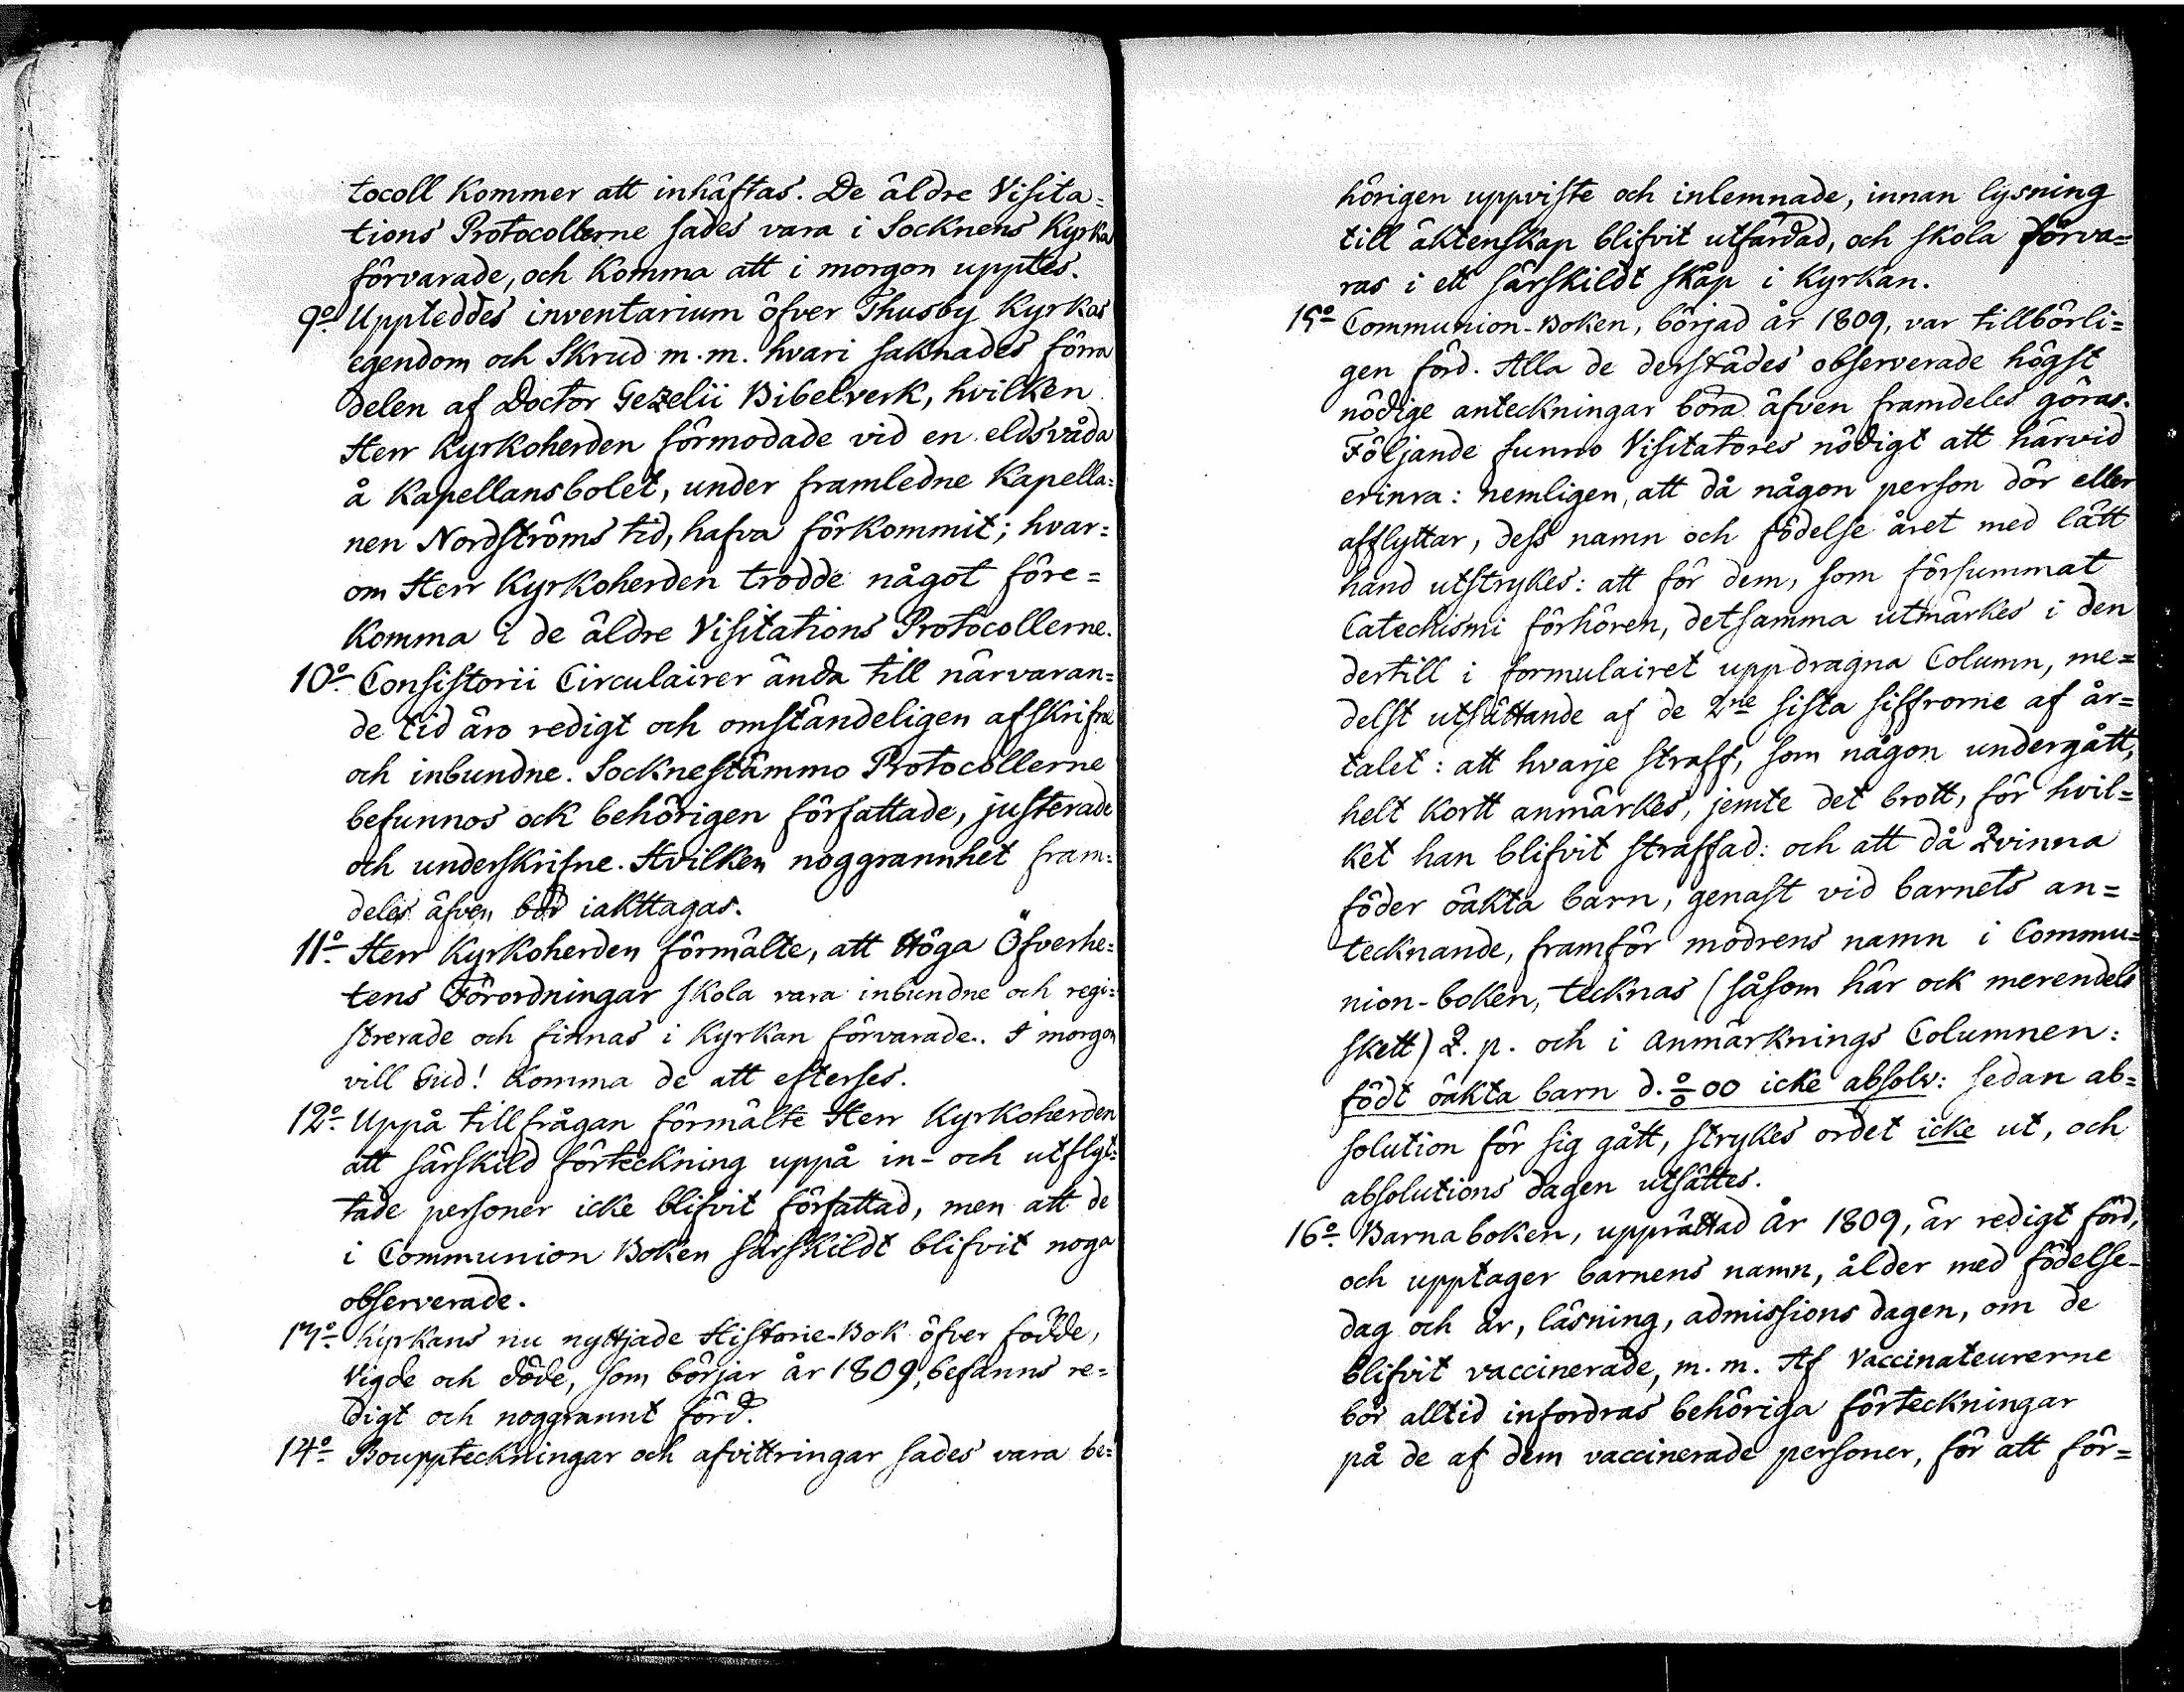 tocoll kommer att inhäftas. De äldre Visita=
tions Protocollerne sades vara i Socknens Kyrka
förvarade, och komma att i morgon upptes.
9o. Uppteddes inventarium öfver Thusby Kyrkas
egendom och Skrud m.m. hvari saknades förra
delen af Doctor Gezelii Bibelverk, hvilken
Herr Kyrkoherden förmodade vid en eldsvåda
å Kapellansbolet, under framledne Kapella=
nen Nordströms tid, hafva förkommit; hvar=
om Herr Kyrkoherden trodde något före=
komma i de äldre Visitations Protocollerne.
10o. Consistorii Circulairer ända till närvaran=
de tid äro redigt och omständeligen afskrifne
och inbundne. Socknestämmo Protocollerne
befunnos ock behörigen författade, justerade
och underskrifne. Hvilken noggrannhet fram=
deles äfven bör iakttagas.
11o. Herr Kyrkoherden förmälte, att Höga Öfverhe=
tens Förordningar skola vara inbundne och regi=
strerade och finnas i Kyrkan förvarade. I morgon
vill Gud! komma de att efterses.
12o. Uppå tillfrågan förmälte Herr Kyrkoherden
att särskild förteckning uppå in- och utflyt=
tade personer icke blifvit författad, men att de
i Communion Boken särskildt blifvit noga
observerade.
13o. Kyrkans nu nyttjade Historie-Bok öfver födde,
Vigde och döde, som börjar år 1809, befanns re=
digt och noggrannt förd.
14o. Bouppteckningar och afvittringar sades vara be=
hörigen uppviste och inlemnade, innan lysning
till äktenskap blifvit utfärdad, och skola förva=
ras i ett särskildt skåp i Kyrkan.
15o Communion-Boken, börjad år 1809, var tillbörli=
gen förd. Alla de derstädes observerade högst
nödige anteckningar böra äfven framdeles göras.
Följande funno Visitatores nödigt att härvid
erinra: nemligen, att då någon person dör eller
afflyttar, dess namn och födelse året med lätt
hand utstrykes: att för dem, som försummat
Catechismi förhören, detsamma utmärkes i den
dertill i formulairet uppdragna Column, me=
delst utsättande af de 2ne sista siffrorne af år=
talet: att hvarje straff, som någon undergått,
helt kortt anmärkes, jemte det brott, för hvil=
ket han blifvit straffad: och att då Qvinna
föder oäkta barn, genast vid barnets an=
tecknande, framför modrens namn i Commu=
nion-boken, tecknas (såsom här ock merendels
skett) Q. p. och i Anmärknings Columnen:
födt oäkta barn d. o/o 00 icke absolv: sedan ab=
solution för sig gått, strykes ordet icke ut, och
absolutions dagen utsättes.
16o. Barnaboken, upprättad År 1809, är redigt förd,
och upptager barnens namn, ålder med födelse-
dag och år, läsning, admissions dagen, om de
blifvit vaccinerade, m.m. Af Vaccinateurerne
bör alltid infordras behöriga förteckningar
på de af dem vaccinerade personer, för att för=